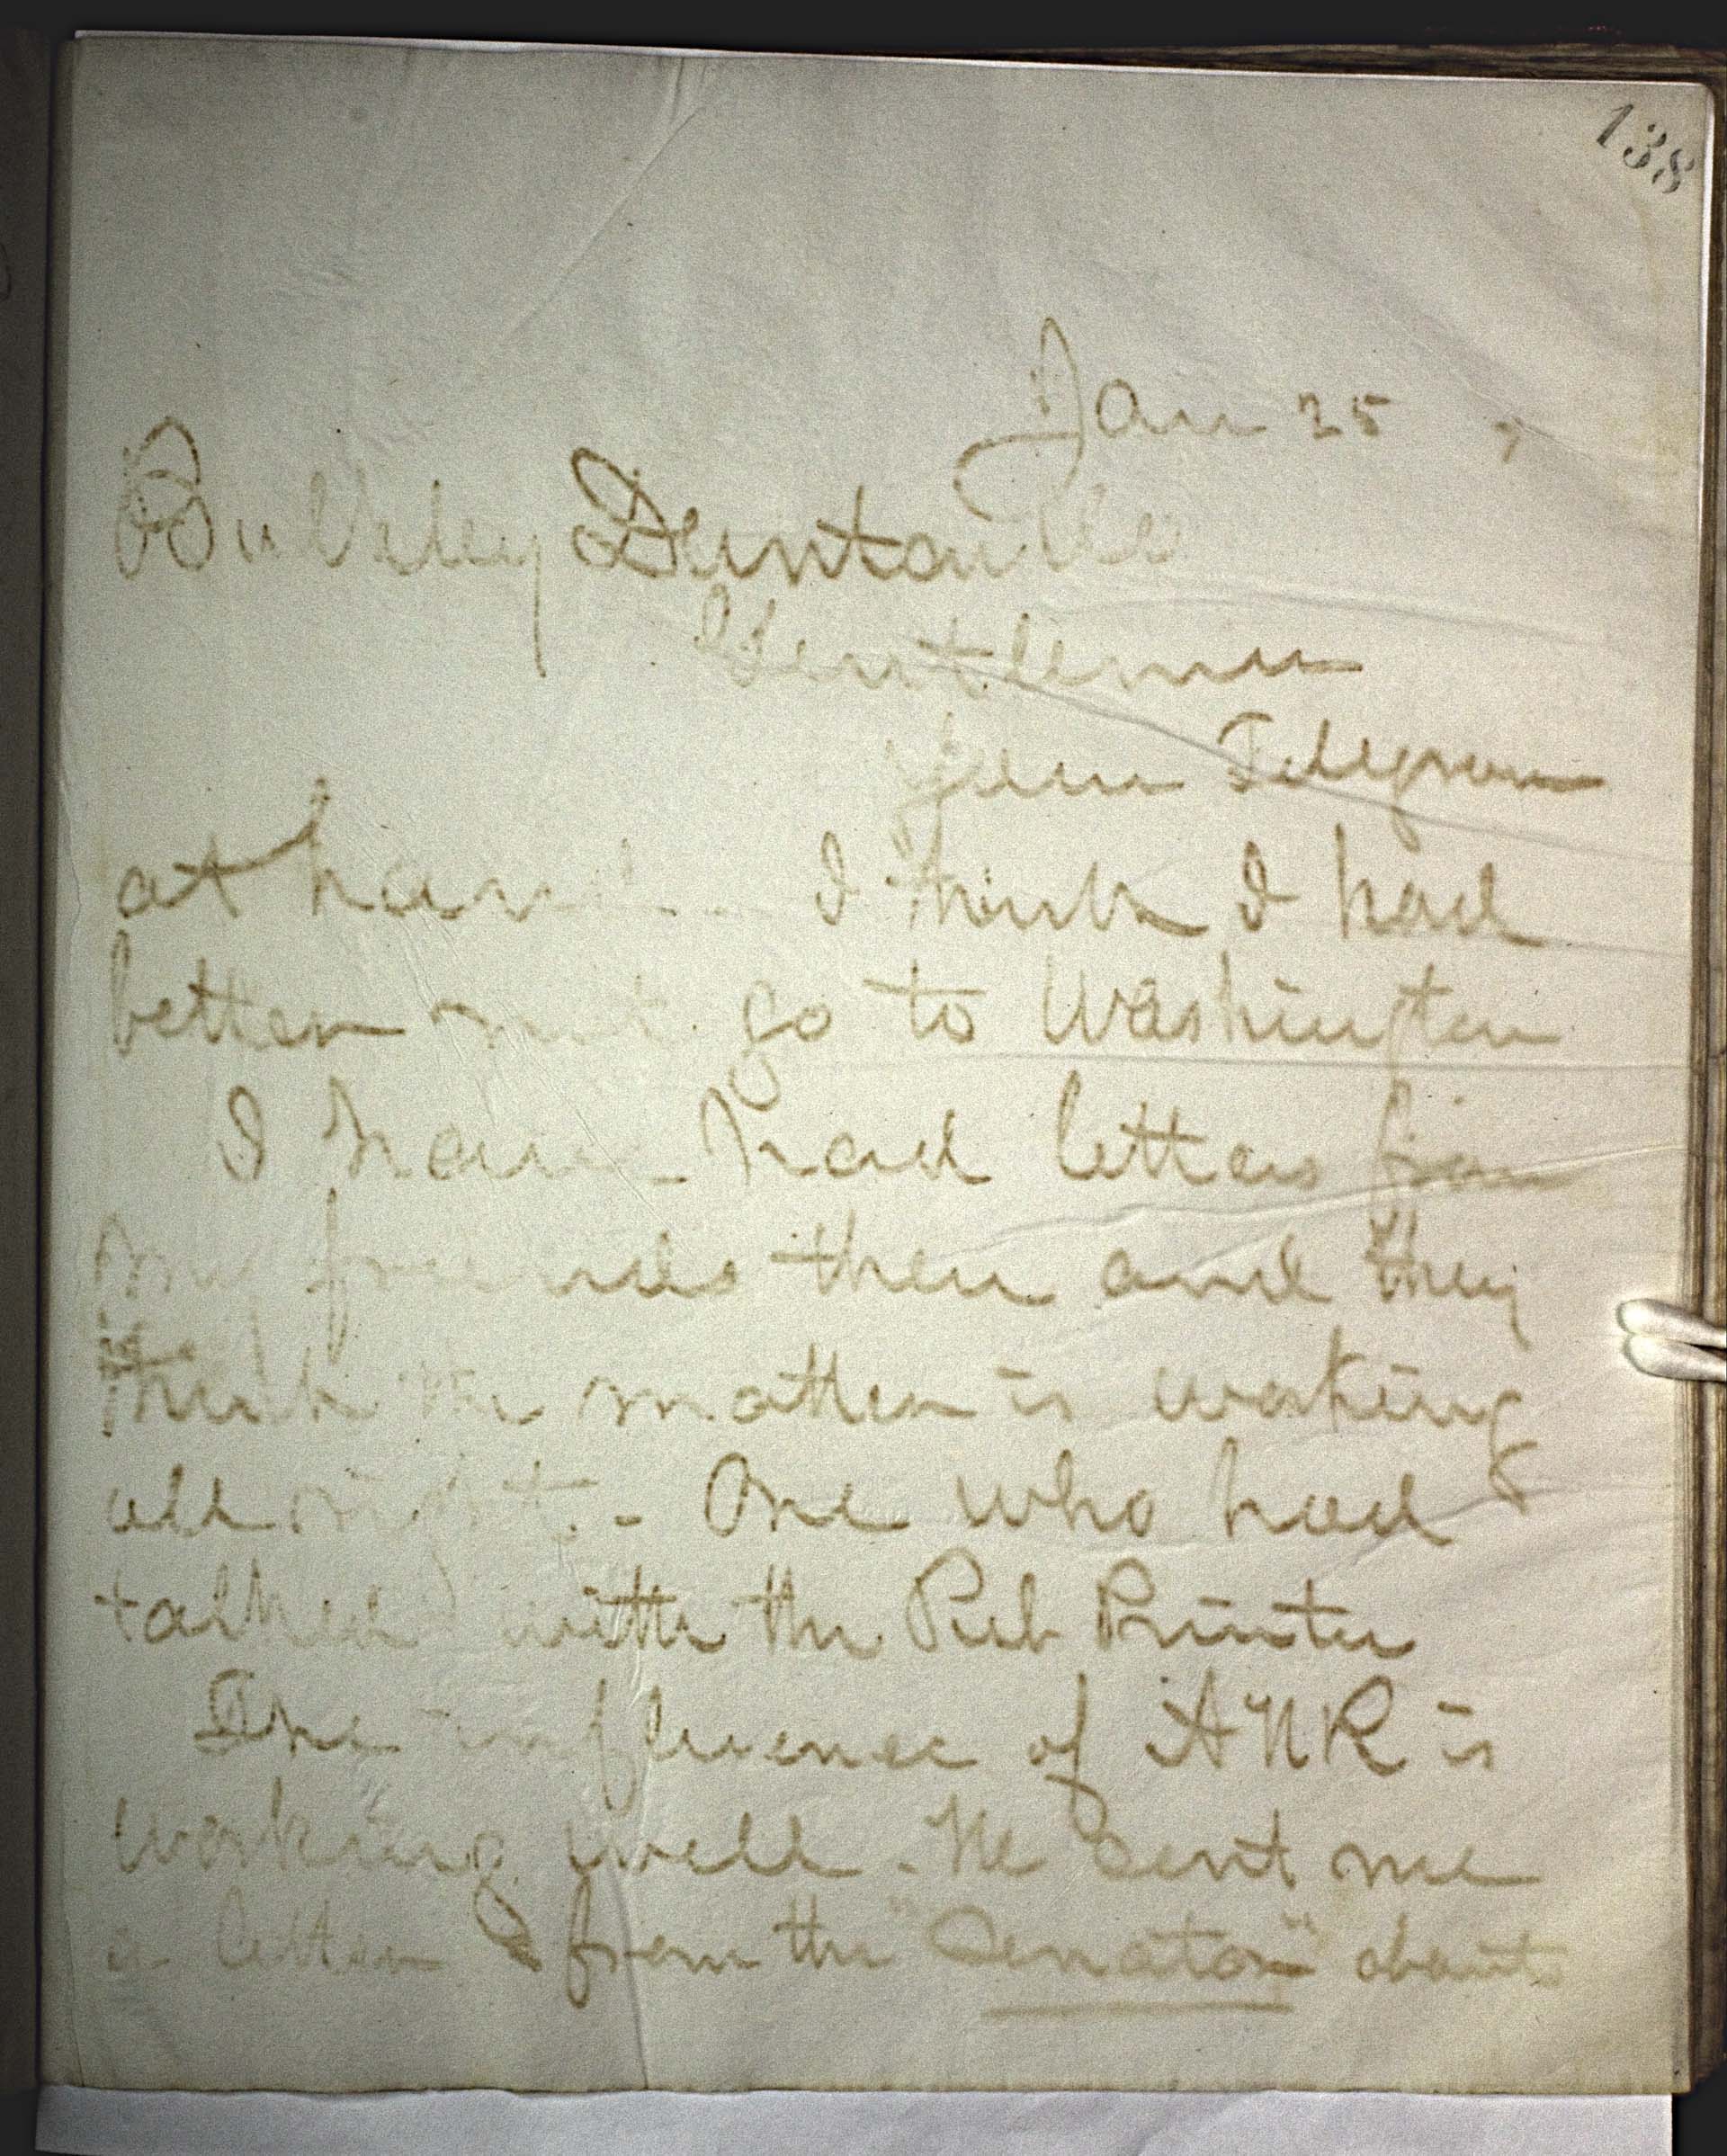 138
Jan 25 7
Bulkley Dunton & Co
Gentlemen
Your Telegram
at hand. I think I had
better not go to Washington
I have had letters from
my friends there and they
think the matter is working
all right. - One who had
talked with the Pub Printer
The influence of ANR is
working well - He sent me
a letter from the "Senator" about